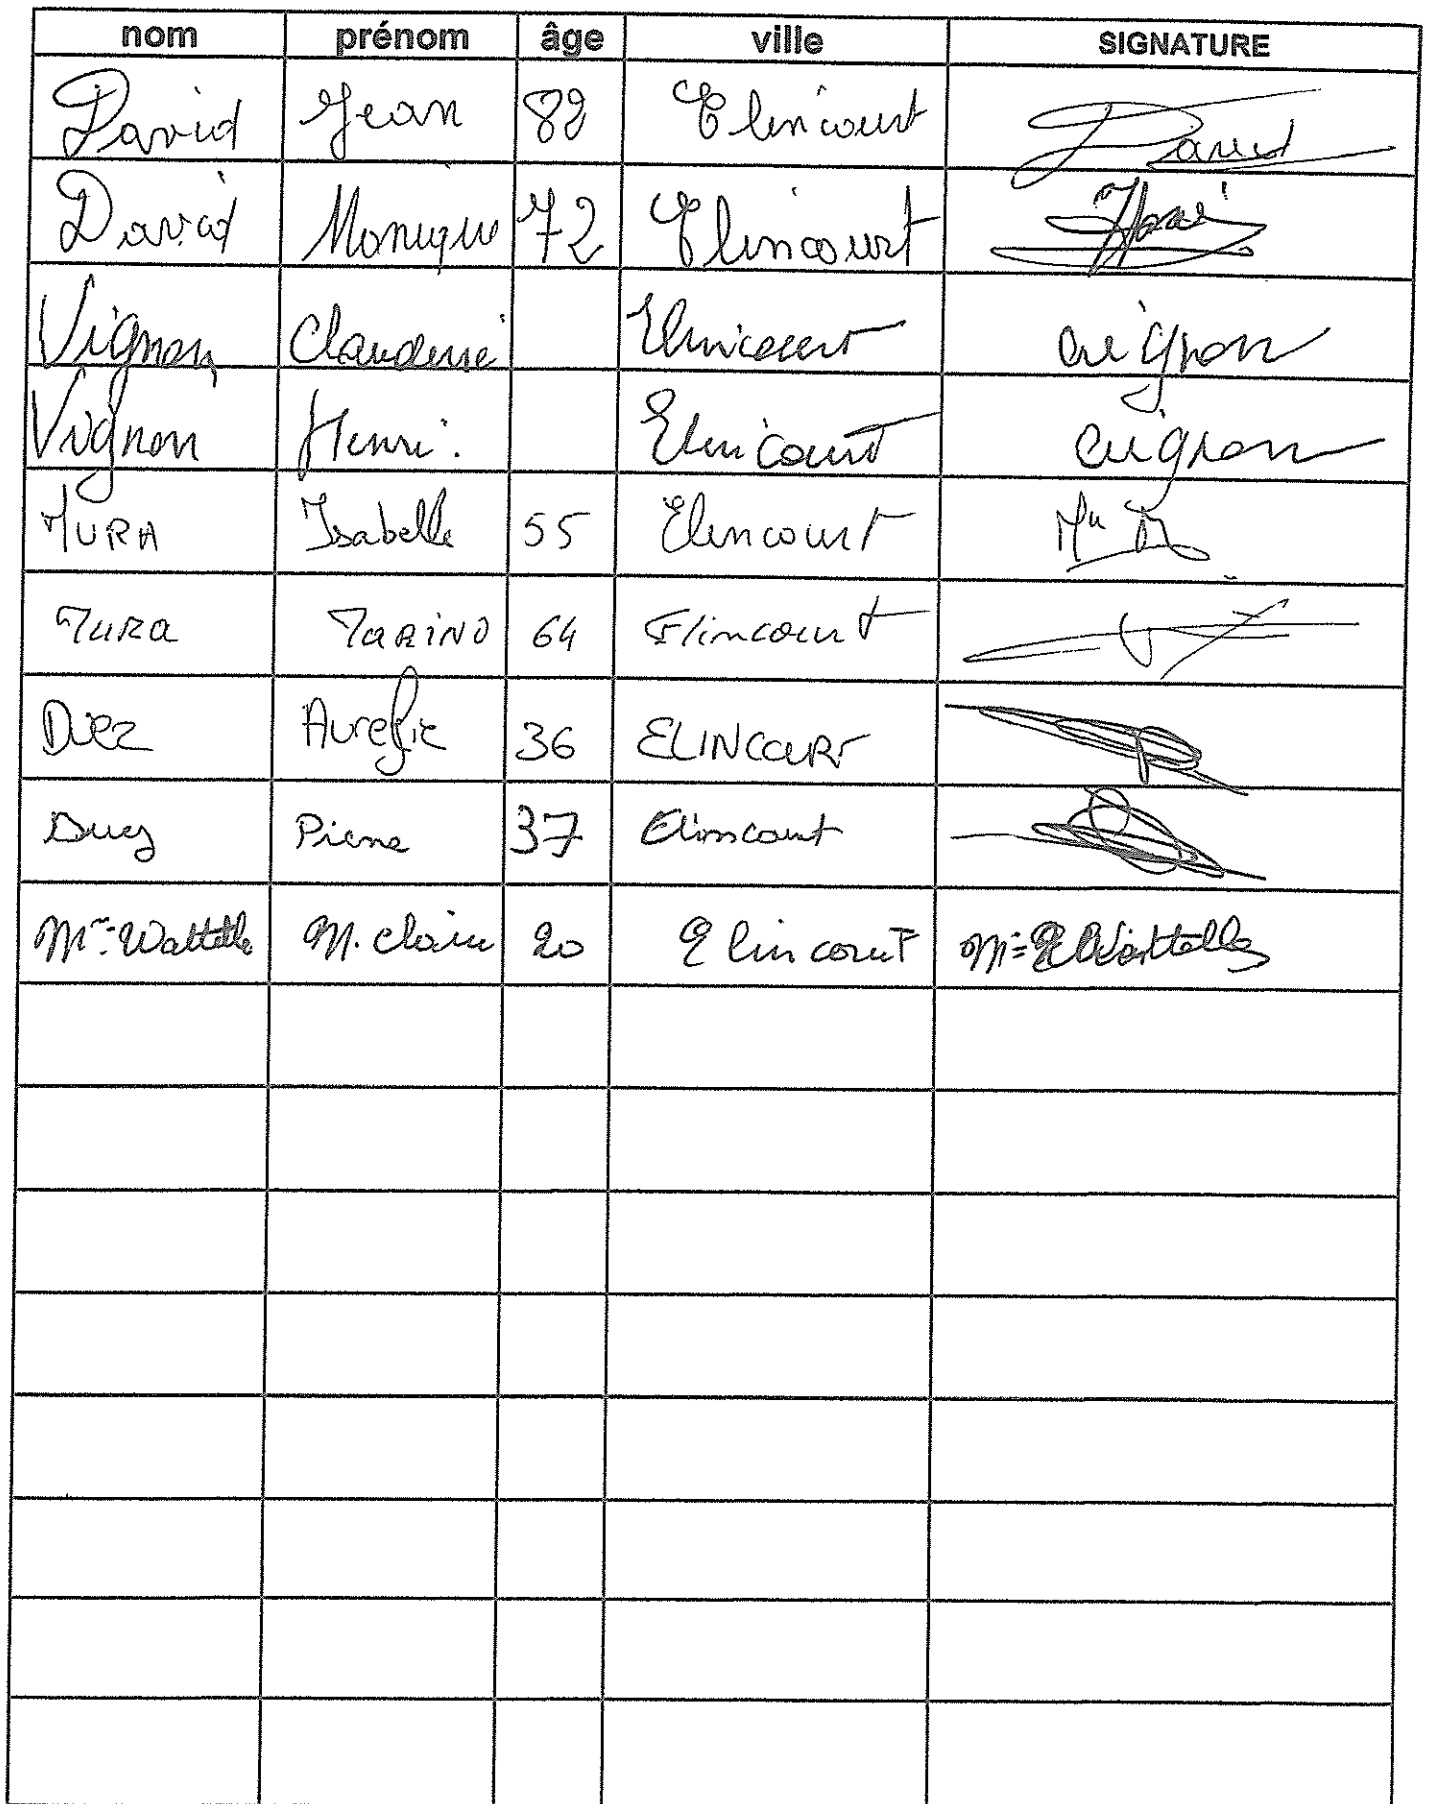 nom prénom âge ville SIGNATURE
David Jean 82 Elincourt David
David Monique 72 Elincourt
Vignon Claudine Elincourt Vignon
Vignon Henri. Elincourt Vignon
MURA Isabelle 55 Elincourt
MURA MARINO 64 Elincourt
Diez Aurélie 36 ELINCOURT
Pierre 37 Elincourt
Mme Wattelle M. Claire 20 Elincourt Mme Wattelle